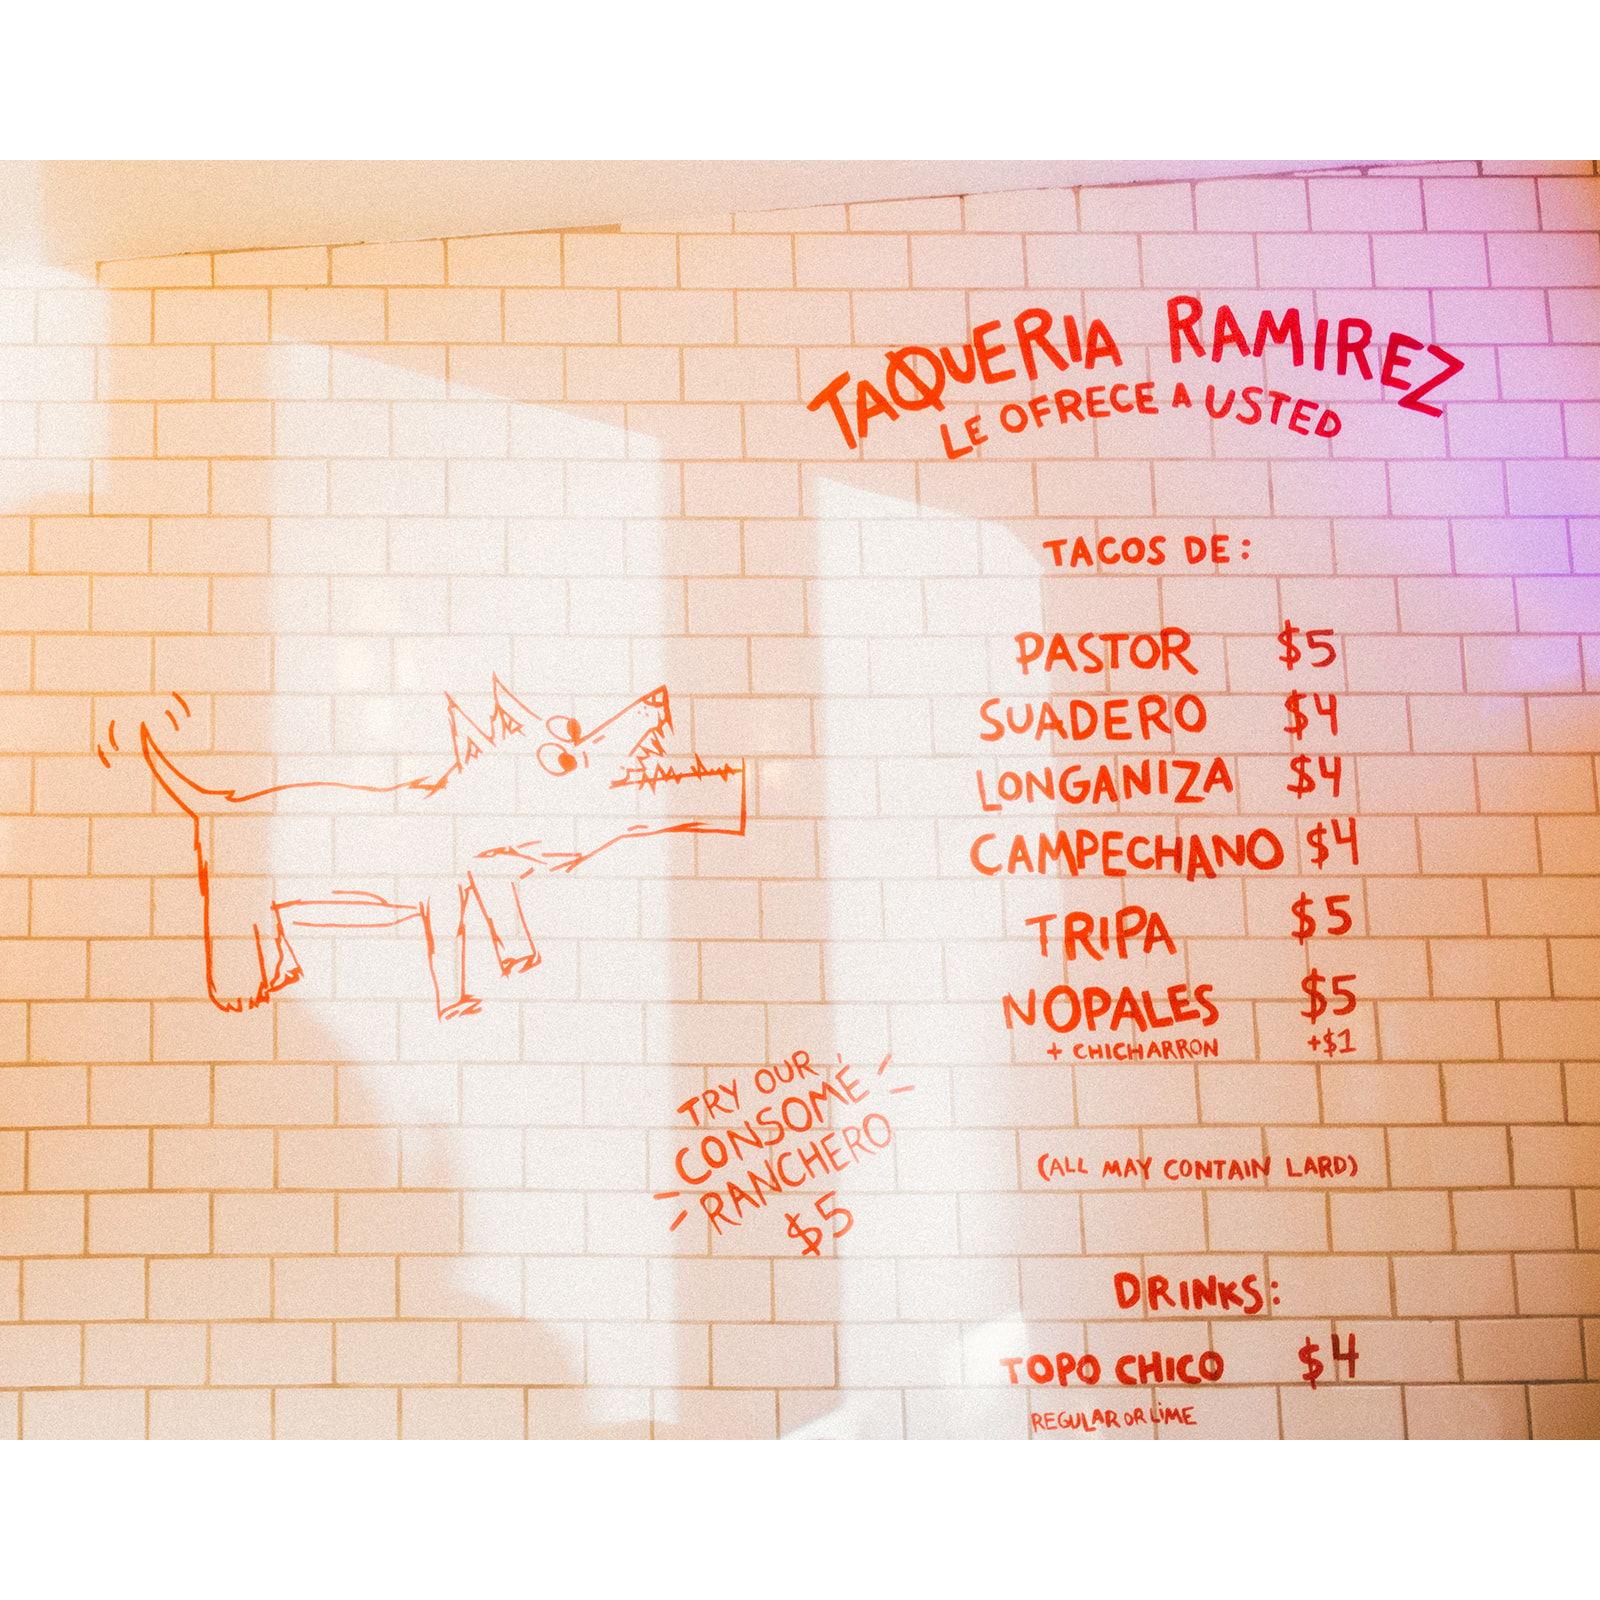 TAQUERIA RAMIREZ
LE OFRECE A USTED
TACOS DE:
PASTOR $5
SUADERO $4
LONGANIZA $4
CAMPECHANO $4
TRIPA $5
NOPALES $5
+ CHICHARRON +$1
(ALL MAY CONTAIN LARD)
TRY OUR
CONSOMÉ
RANCHERO
$5
DRINKS:
TOPO CHICO $4
REGULAR OR LIME